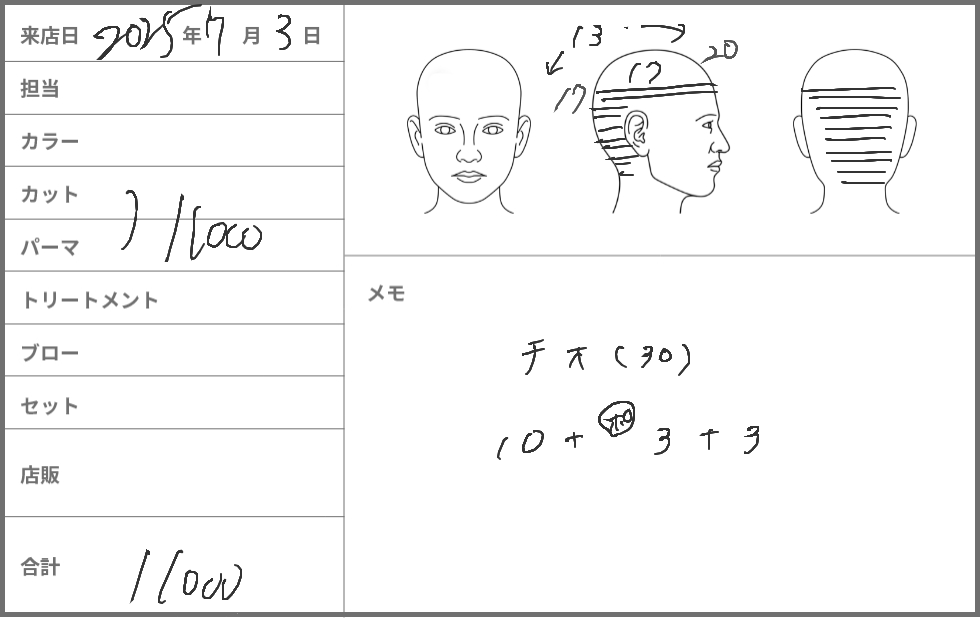 来店日 2025年7月3日
担当
カラー
カット
パーマ
11000
トリートメント
ブロー
セット
店販
合計 11000
13
20
17
17
メモ
チオ(30)
10+ 3+3